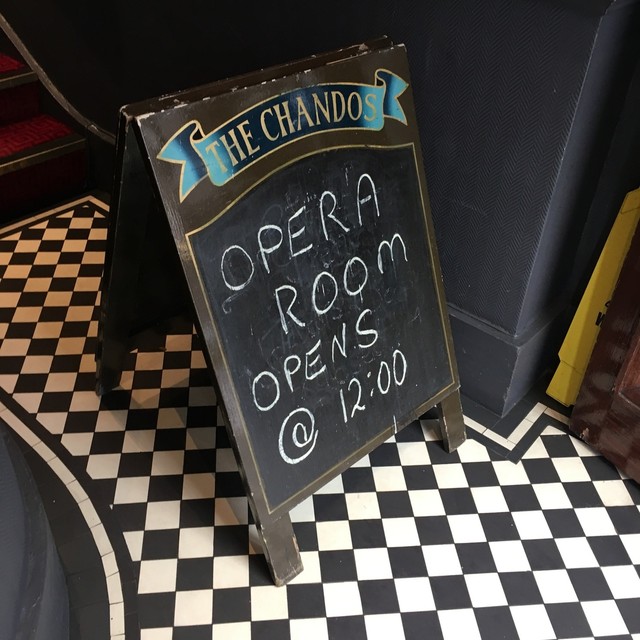 THE CHANDOS
OPERA
ROOM
OPENS
@ 12:00